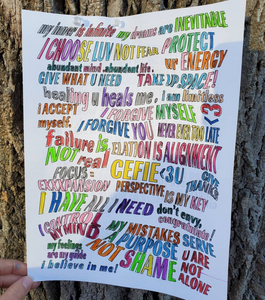 my inner is infinite my dreams are INEVITABLE
I CHOOSE LUV NOT FEAR. PROTECT
ur ENERGY
abundant mind. abundant life.
GIVE WHAT U NEED TAKE UP SPACE!
healing u heals me. I am limitless
I ACCEPT
myself.
I FORGIVE MYSELF
I FORGIVE YOU NEVER EVER TOO LATE
failure is
NOT real
ELATION IS ALIGNMENT
FOCUS =
EXXXPANSION
CEFIE <3U GIVE
THANKS
PERSPECTIVE IS MY KEY
I HAVE ALL I NEED don't envy,
congratulate!
I CONTROL
MY MIND
MY MISTAKES SERVE
my feelings
are my guide
PURPOSE
NOT SHAME
U ARE
NOT
ALONE
i believe in me!